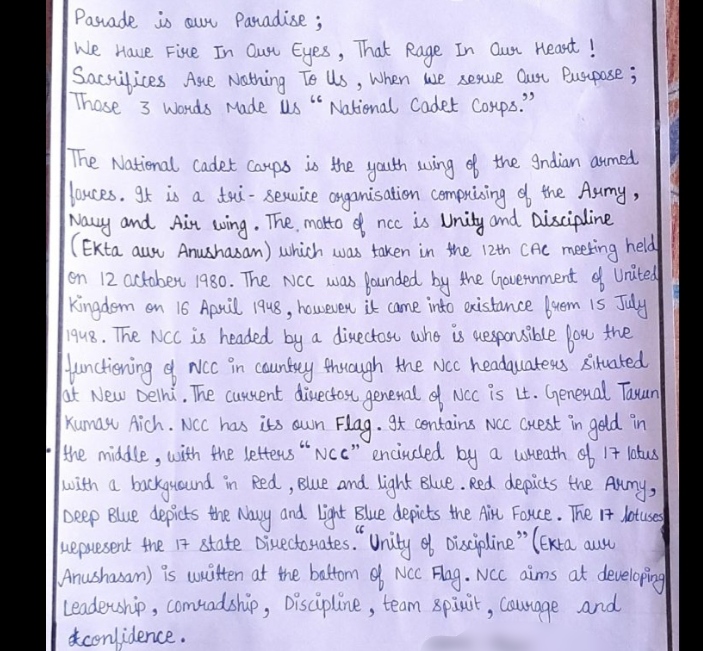 Parade is our Paradise ;
We Have Fire In Our Eyes , That Rage In Our Heart !
Sacrifices Are Nothing To Us , When we serve Our Purpose ;
Those 3 Words Made Us “ National Cadet Corps.”
The National Cadet Corps is the youth wing of the Indian armed
forces. It is a tri - service organisation comprising of the Army ,
Navy and Air wing . The motto of ncc is Unity and Discipline
(Ekta aur Anushasan) which was taken in the 12th CAC meeting held
on 12 october 1980. The NCC was founded by the Government of United
Kingdom on 16 April 1948 , however it came into existance from 15 July
1948 . The NCC is headed by a director who is responsible for the
functioning of NCC in country through the NCC headquaters situated
at New Delhi . The current director general of NCC is Lt. General Tarun
Kumar Aich . NCC has its own Flag . It contains NCC Crest in gold in
the middle , with the letters “ NCC” encircled by a wreath of 17 lotus
with a background in Red , Blue and light Blue . Red depicts the Army,
Deep Blue depicts the Navy and light Blue depicts the Air Force . The 17 lotuses
represent the 17 state Directorates. “Unity of Discipline” (Ekta aur
Anushasan) is written at the bottom of NCC Flag . NCC aims at developing
Leadership , comradship , Discipline , team spirit , Courage and
confidence .